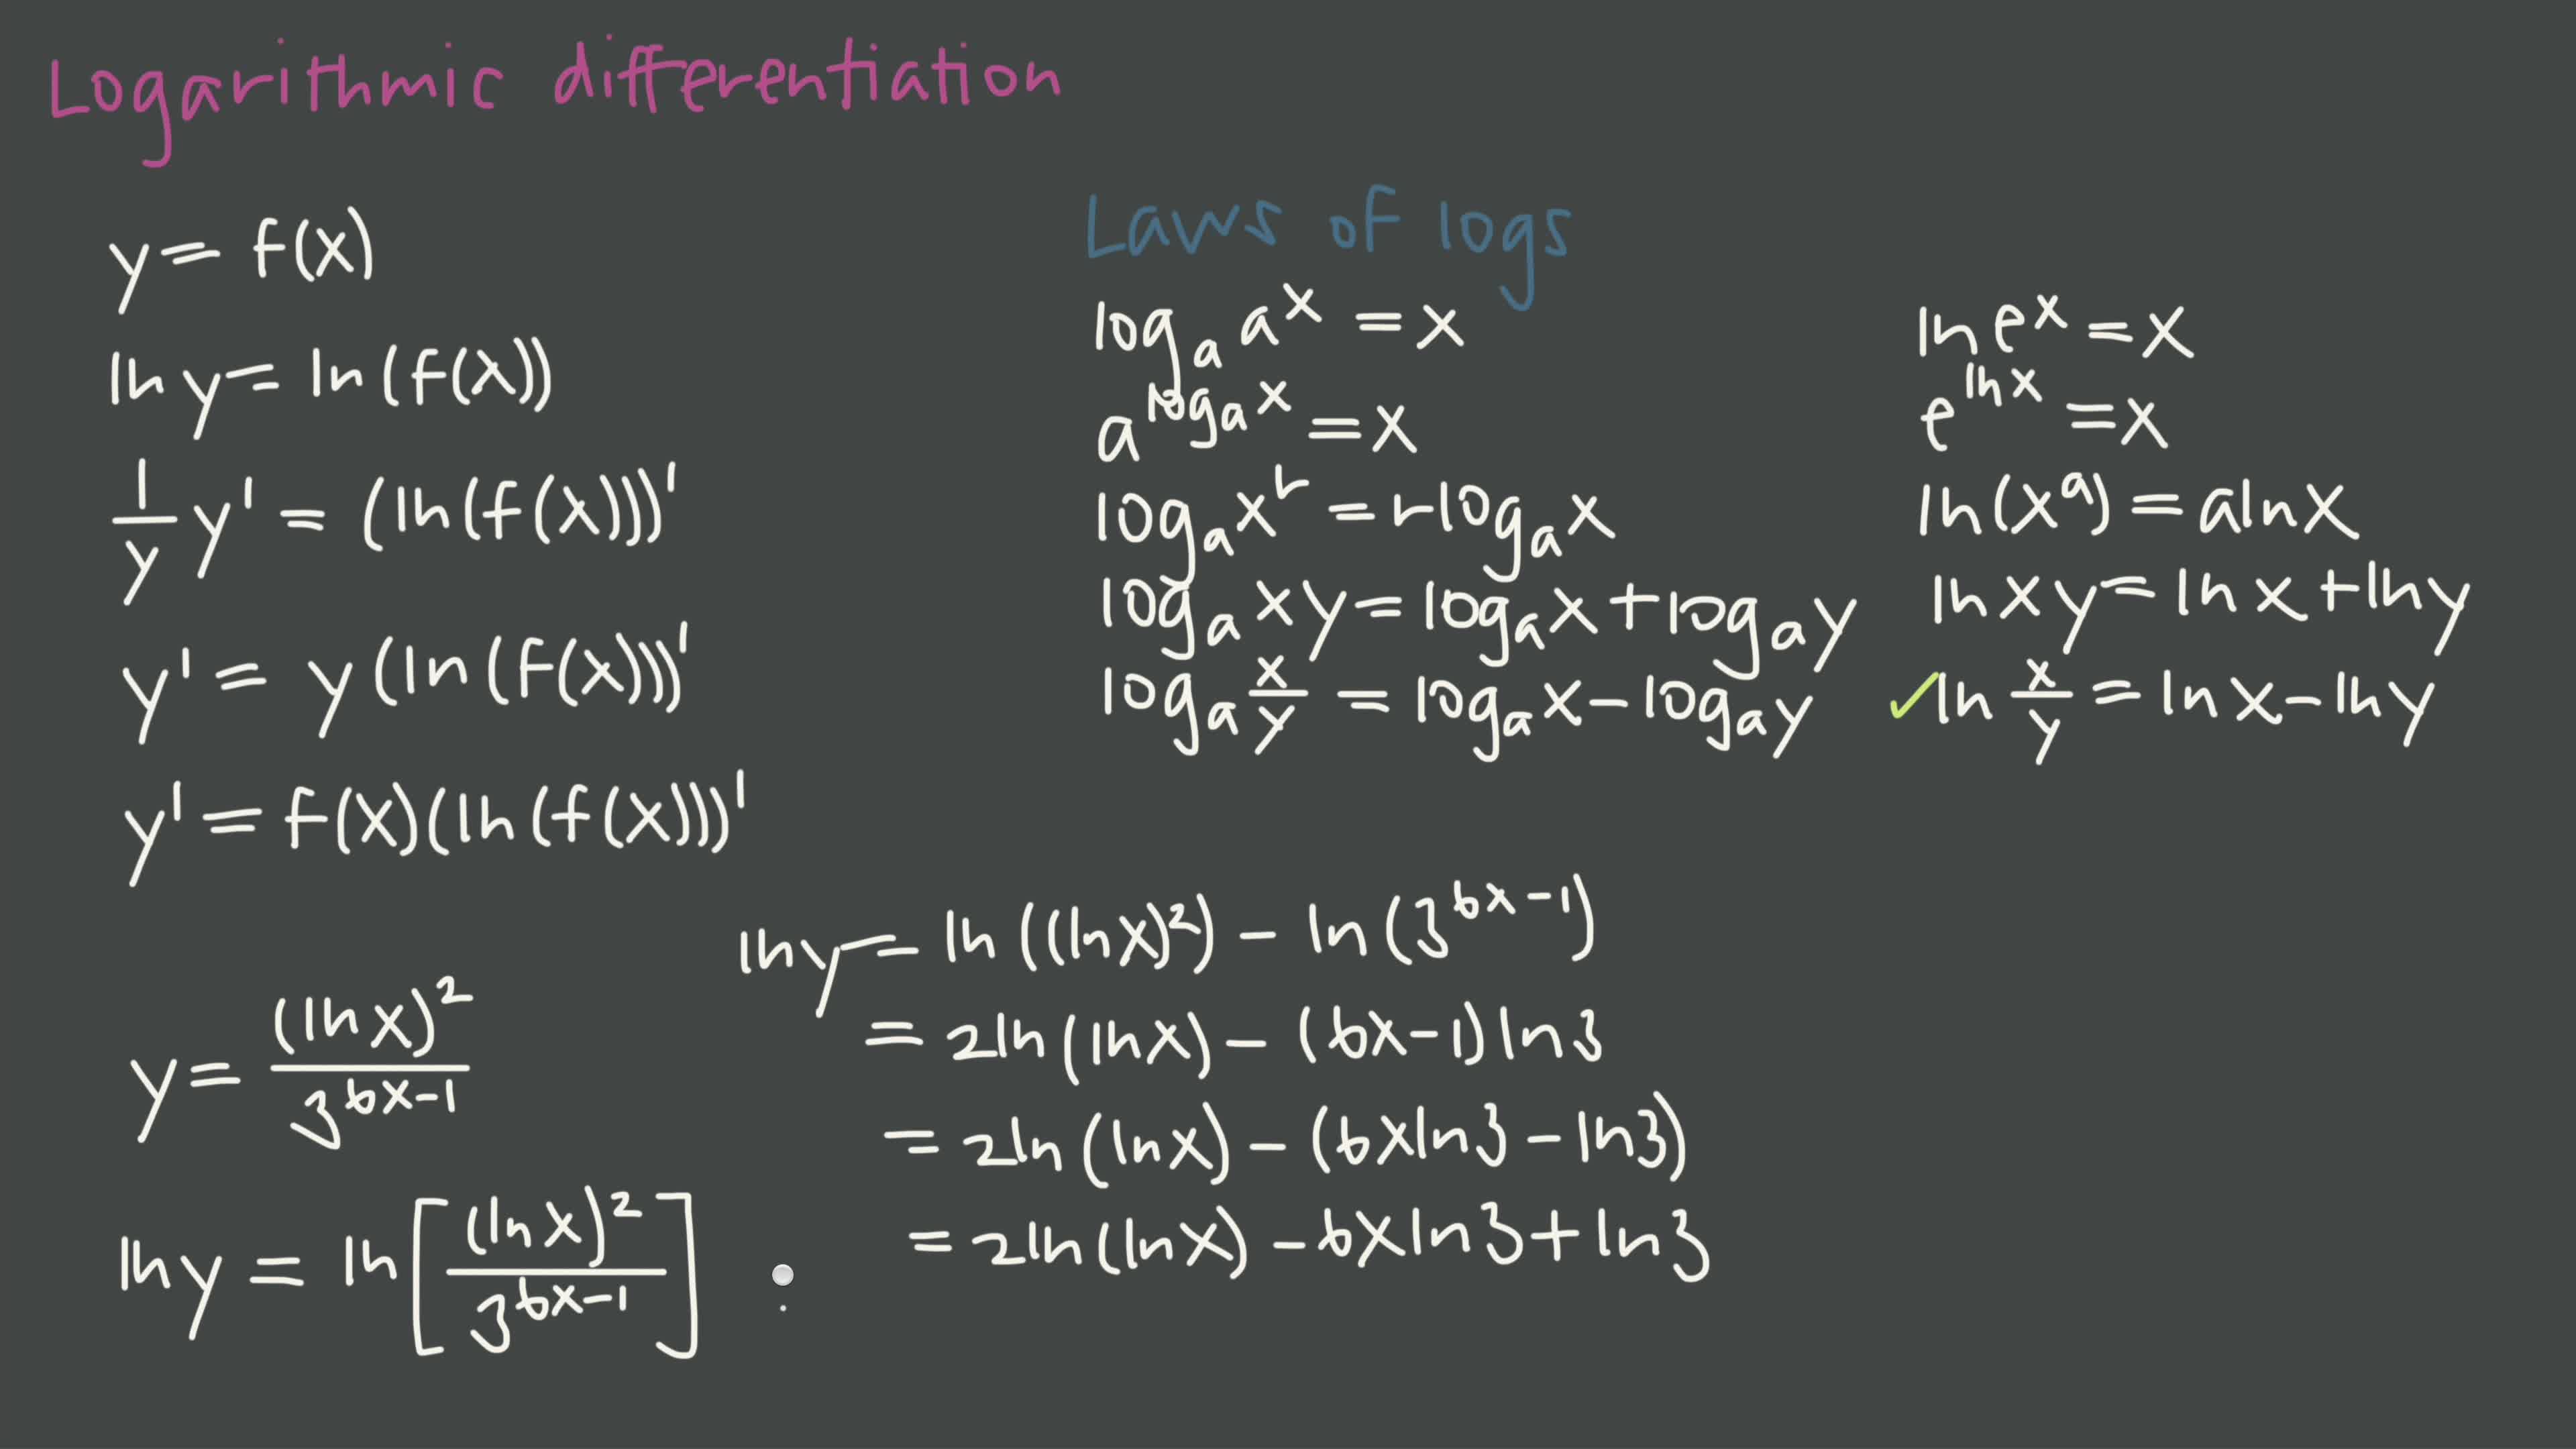 Logarithmic differentiation
y = f(x)
ln y = ln(f(x))
1/y y' = (ln(f(x)))'
y' = y(ln(f(x)))'
y' = f(x)(ln(f(x)))'
Laws of logs
logₐ aˣ = x
a^(logₐ x) = x
logₐ xʳ = r logₐ x
logₐ xy = logₐ x + logₐ y
logₐ x/y = logₐ x − logₐ y
ln eˣ = x
e^(ln x) = x
ln(xᵃ) = a ln x
ln xy = ln x + ln y
✓ ln x/y = ln x − ln y
y = (ln x)² / 3^(6x−1)
ln y = ln[(ln x)² / 3^(6x−1)]
ln y = ln((ln x)²) − ln(3^(6x−1))
= 2ln(ln x) − (6x−1)ln3
= 2ln(ln x) − (6x ln3 − ln3)
= 2ln(ln x) − 6x ln3 + ln3